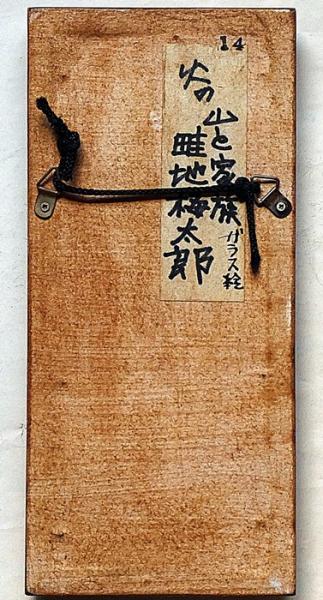 14
火の山と家族
畦地梅太郎
ガラス絵